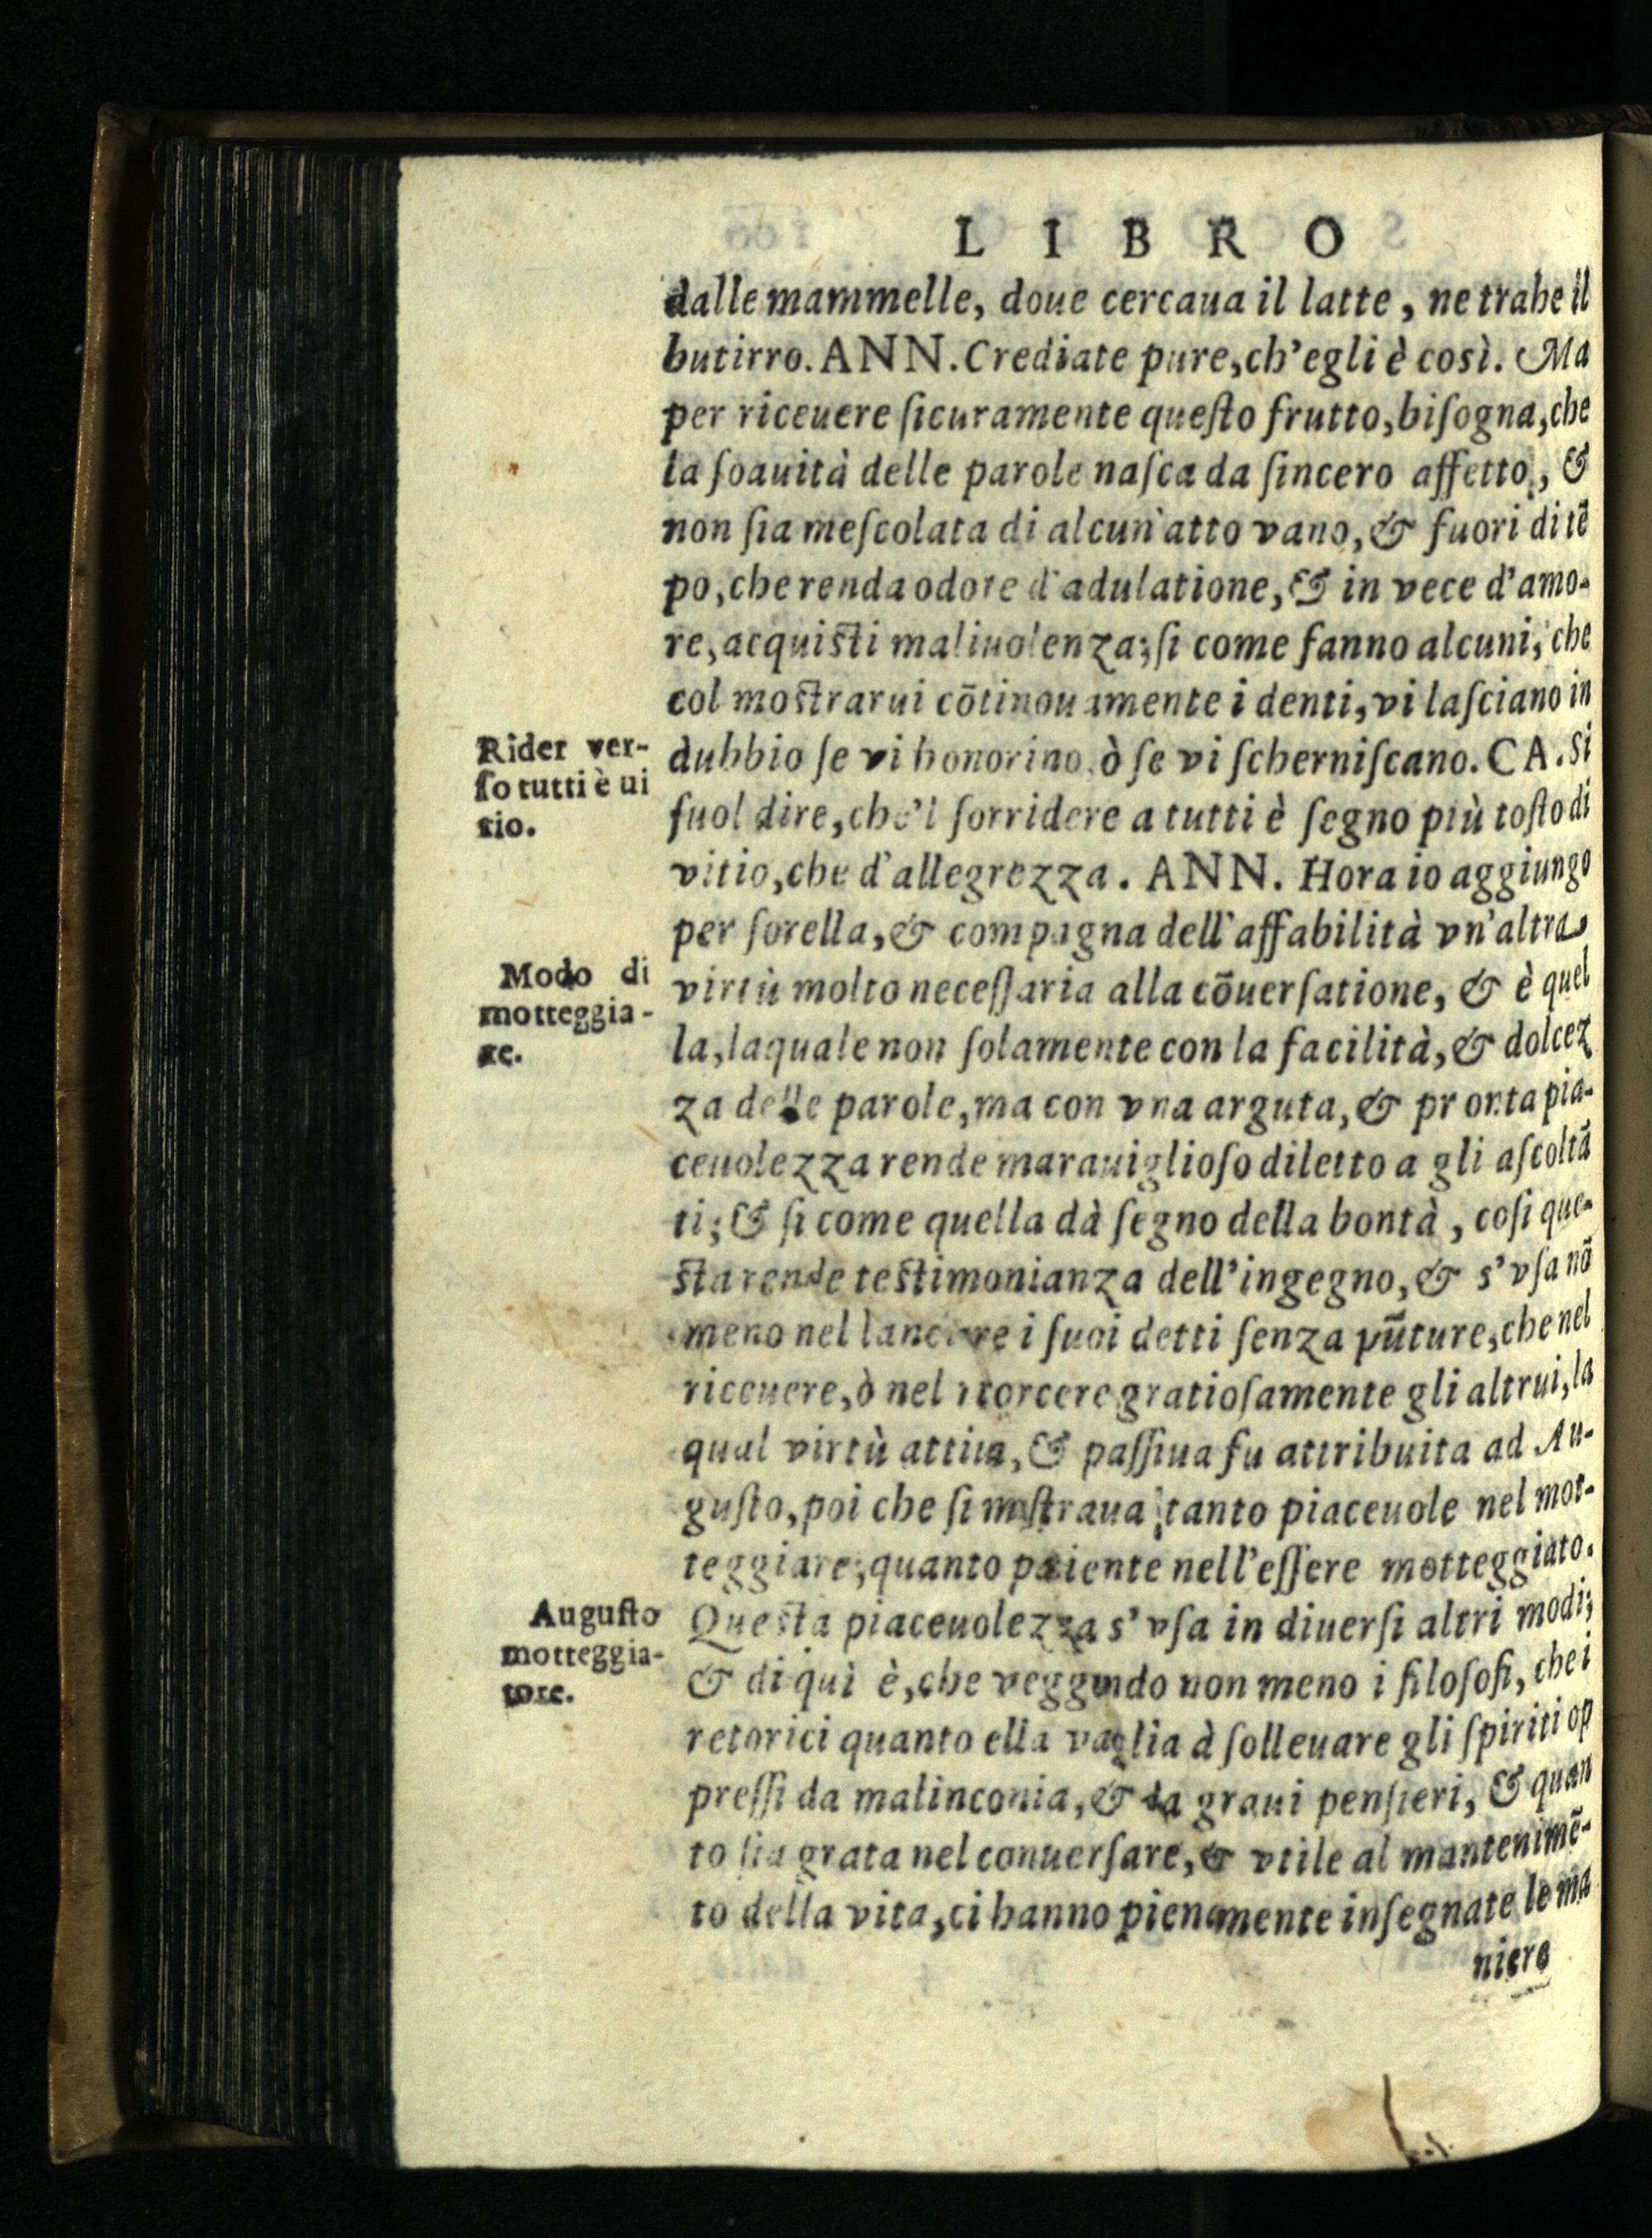 LIBRO
dalle mammelle, doue cercaua il latte, ne trahe il
butirro. ANN. Crediate pure, ch'egli è così. Ma
per riceuere ſicuramente queſto frutto, biſogna, che
la ſoauità delle parole naſca da ſincero affetto, &
non ſia meſcolata di alcun'atto vano, & fuori di tē
po, che renda odore d'adulatione, & in vece d'amo-
re, acquiſti maliuolenza; ſi come fanno alcuni, che
col moſtrarui cōtinouamente i denti, vi laſciano in
Rider ver-
ſo tutti è ui
tio.
dubbio ſe vi honorino, ò ſe vi ſcherniſcano. CA. Si
ſuol dire, che'l ſorridere a tutti è ſegno più toſto di
vitio, che d'allegrezza. ANN. Hora io aggiungo
per ſorella, & compagna dell'affabilità vn'altra
Modo di
motteggia-
re.
virtù molto neceſſaria alla cōuerſatione, & è quel
la, laquale non ſolamente con la facilità, & dolcez
za delle parole, ma con vna arguta, & pronta pia-
ceuolezza rende marauiglioſo diletto a gli aſcoltā
ti; & ſi come quella dà ſegno della bontà, coſi que-
ſta rende teſtimonianza dell'ingegno, & s'vſa nō
meno nel lanciare i ſuoi detti ſenza pūture, che nel
riceuere, ò nel ritorcere gratioſamente gli altrui, la
qual virtù attiua, & paſſiua fu attribuita ad Au-
guſto, poi che ſi moſtraua tanto piaceuole nel mot-
teggiare, quanto patiente nell'eſſere motteggiato.
Auguſto
motteggia-
tore.
Queſta piaceuolezza s'vſa in diuerſi altri modi;
& di quì è, che veggendo non meno i filoſofi, che i
retorici quanto ella vaglia à ſolleuare gli ſpiriti op
preſſi da malinconia, & da graui penſieri, & quan
to ſia grata nel conuerſare, & vtile al mantenimē-
to della vita, ci hanno pienamente inſegnate le ma
niere